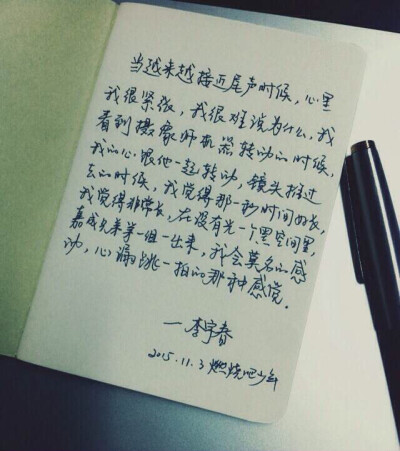 当越来越接近尾声时候，心里
我很紧张，我很难说为什么，我
看到摄像师机器转动的时候，
我的心跟他一起转动，镜头推过
去的时候，我觉得那一秒时间好长，
我觉得非常长，在没有光一个黑空间里，
嘉成兄弟第一组一出来，我会莫名的感
动，心漏跳一拍的那种感觉．
—李宇春
2015.11.3 燃烧吧少年